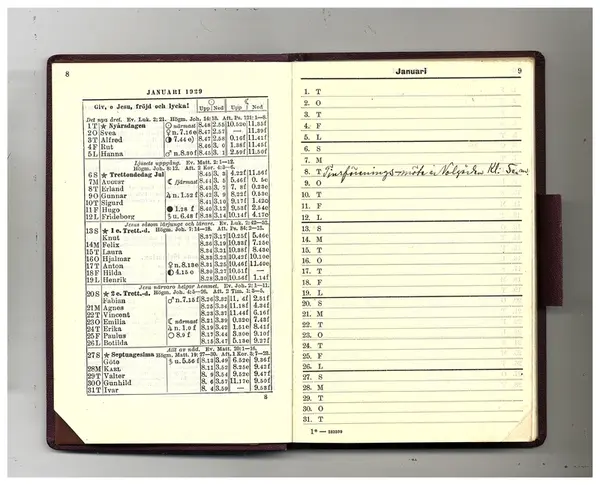 8
JANUARI 1929
Giv, o Jesu, fröjd och lycka!
Upp Ned Upp Ned
Det nya året. Ev. Luk. 2: 21. Högm. Joh. 14: 13. Aft. Ps. 121: 1—8.
1 T ★ Nyårsdagen närmast 8.48 2.55 10.52e 11.25f
2 O Svea n. 7.16e 8.47 2.57 — 11.39f
3 T Alfred 7.44e 8.47 2.58 0.14f 11.41f
4 F Rut 8.46 3.0 1.38f 11.45f
5 L Hanna n. 8.20f 8.46 3.1 2.59f 11.50f
Ljusets uppgång. Ev. Matt. 2: 1—12.
Högm. Joh. 8: 12. Aft. 2 Kor. 4: 3—6.
6 S ★ Trettondedag Jul 8.45 3.3 4.22f 11.56f
7 M August fjärmast 8.44 3.5 5.46f 0.5e
8 T Erland 8.43 3.1 7.8f 0.23e
9 O Gunnar n. 1.52f 8.43 3.9 8.22f 0.53e
10 T Sigurd 8.41 3.10 9.17f 1.42e
11 F Hugo 1.28f 8.40 3.12 9.53f 2.54e
12 L Frideborg u. 6.48f 8.38 3.14 10.14f 4.17e
Jesus såsom lärjunge och lärare. Ev. Luk. 2: 42—52.
13 S ★ 1 e. Trett.-d. Högm. Joh. 7: 14—18. Aft. Ps. 84: 2—13.
Knut 8.37 3.17 10.25f 5.46e
14 M Felix 8.36 3.19 10.33f 7.15e
15 T Laura 8.34 3.21 10.38f 8.43e
16 O Hjalmar 8.33 3.23 10.42f 10.10e
17 T Anton n. 8.13e 8.31 3.25 10.46f 11.40e
18 F Hilda 4.15e 8.30 3.27 10.51f —
19 L Henrik 8.28 3.30 10.56f 1.14f
Jesus närmare helgar hemmet. Ev. Joh. 2: 1—11.
20 S ★ 2 e. Trett.-d. Högm. Joh. 4: 5—26. Aft. 2 Tim. 1: 3—5.
Fabian n. 7.15f 8.26 3.32 11.4f 2.51f
21 M Agnes 8.25 3.34 11.18f 4.34f
22 T Vincent 8.23 3.37 11.44f 6.16f
23 O Emilia närmast 8.21 3.39 0.32e 7.43f
24 T Erika n. 1.0f 8.19 3.42 1.51e 8.41f
25 F Paulus 8.9f 8.17 3.44 3.30e 9.10f
26 L Botilda 8.15 3.47 5.13e 9.27f
Allt av nåd. Ev. Matt. 20: 1—16.
27 S ★ Septuagesima Högm. Matt. 19: 27—30. Aft. 1 Kor. 3: 7—23.
Göte u. 5.56f 8.13 3.49 6.52e 9.36f
28 M Karl 8.11 3.52 8.25e 9.42f
29 T Valter 8.9 3.54 9.52e 9.47f
30 O Gunhild 8.6 3.57 11.17e 9.50f
31 T Ivar 8.4 3.59 — 9.53f
8
Januari 9
1. T
2. O
3. T
4. F
5. L
6. S
7. M
8. T
9. O
10. T
11. F
12. L
13. S
14. M
15. T
16. O
17. T
18. F
19. L
20. S
21. M
22. T
23. O
24. T
25. F
26. L
27. S
28. M
29. T
30. O
31. T